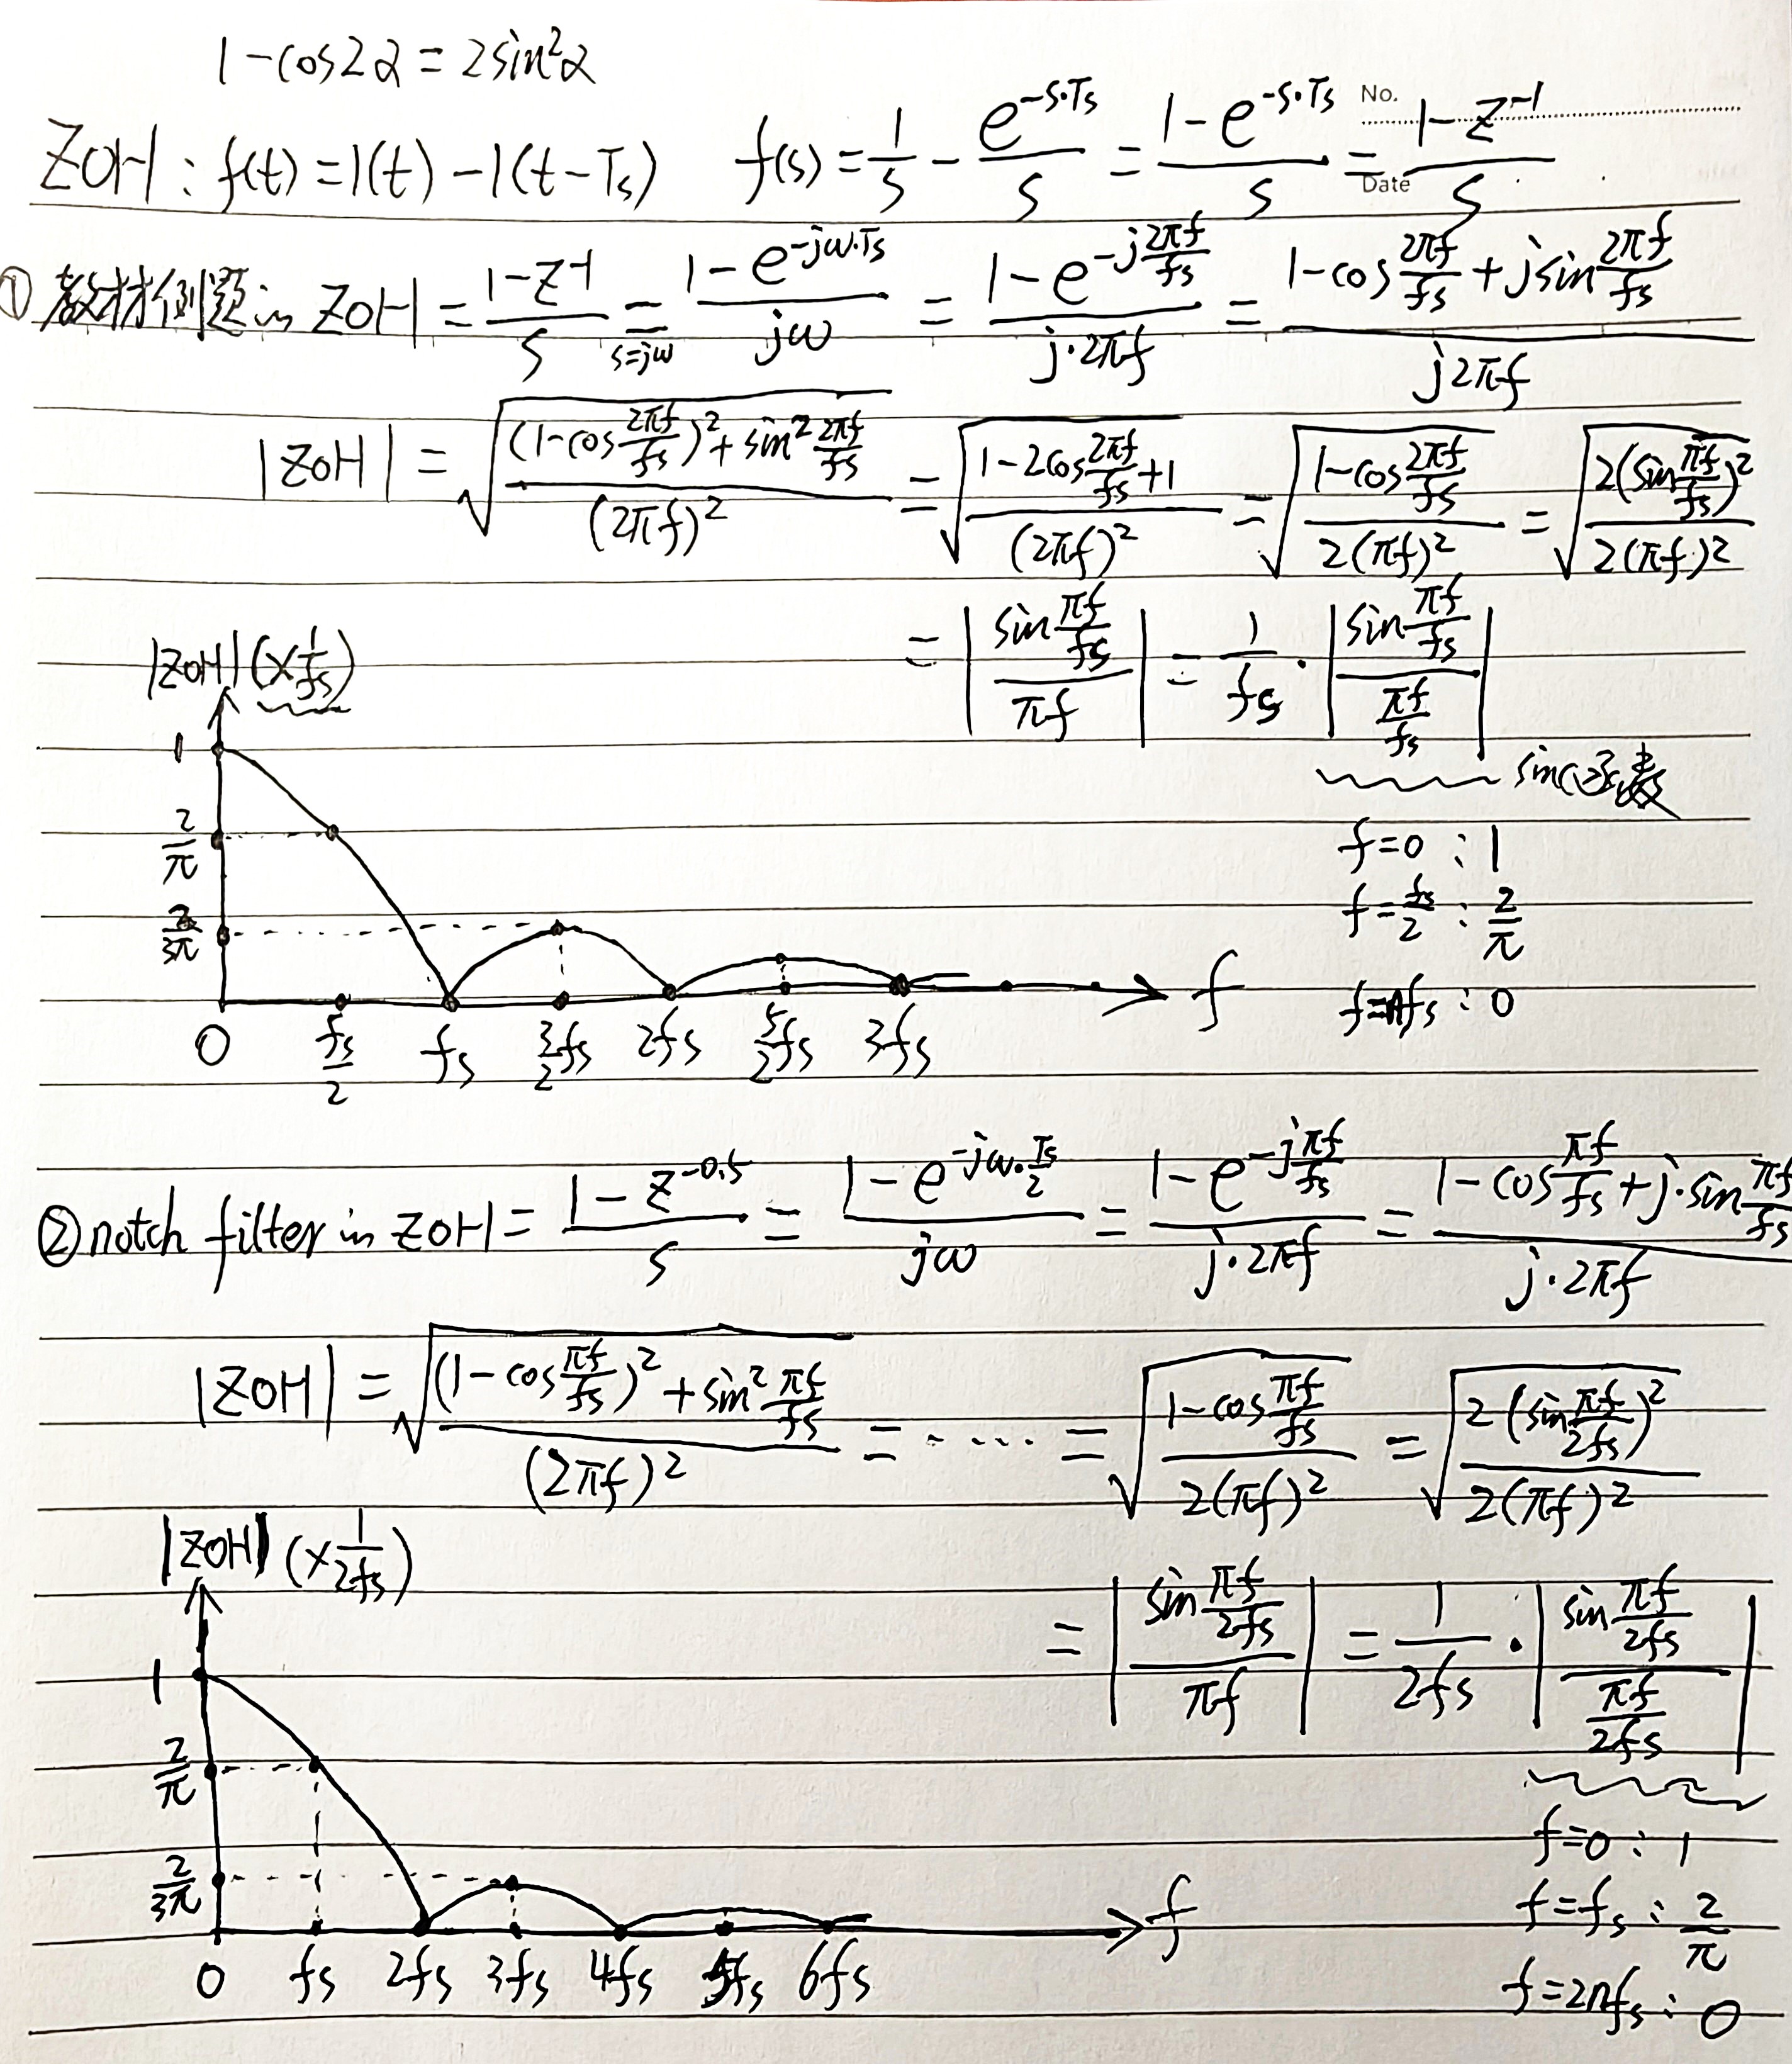 1-cos2α = 2sin²α
No.
Date
ZOH : f(t) = 1(t) - 1(t-Ts)   f(s) = 1/s - e^(-s·Ts)/s = (1-e^(-s·Ts))/s = (1-z^-1)/s
① 教材例题in ZOH = (1-z^-1)/s =(s=jω) (1-e^(-jω·Ts))/(jω) = (1-e^(-j2πf/fs))/(j·2πf) = (1-cos(2πf/fs)+jsin(2πf/fs))/(j2πf)
|ZOH| = √(((1-cos(2πf/fs))²+sin²(2πf/fs))/(2πf)²) = √((1-2cos(2πf/fs)+1)/(2πf)²) = √((1-cos(2πf/fs))/(2(πf)²)) = √(2(sin(πf/fs))²/(2(πf)²))
= |sin(πf/fs)/(πf)| = 1/fs · |sin(πf/fs)/(πf/fs)|
sinc函数
f=0 : 1
f=fs/2 : 2/π
f=nfs : 0
|ZOH| (×1/fs)
1
2/π
2/3π
0 fs/2 fs 3/2fs 2fs 5/2fs 3fs f
② notch filter in ZOH = (1-z^-0.5)/s = (1-e^(-jω·Ts/2))/(jω) = (1-e^(-jπf/fs))/(j·2πf) = (1-cos(πf/fs)+j·sin(πf/fs))/(j·2πf)
|ZOH| = √(((1-cos(πf/fs))²+sin²(πf/fs))/(2πf)²) = ····· = √((1-cos(πf/fs))/(2(πf)²)) = √(2(sin(πf/2fs))²/(2(πf)²))
= |sin(πf/2fs)/(πf)| = 1/2fs · |sin(πf/2fs)/(πf/2fs)|
f=0 : 1
f=fs : 2/π
f=2nfs : 0
|ZOH| (×1/2fs)
1
2/π
2/3π
0 fs 2fs 3fs 4fs 5fs 6fs f